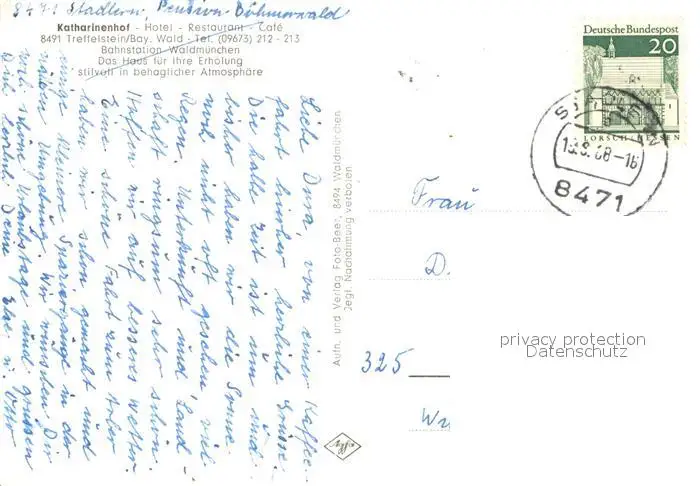 8471 Stadlern, Pension Böhmerwald
Katharinenhof - Hotel - Restaurant - Café
8491 Treffelstein/Bay. Wald - Tel. (09673) 212 - 213
Bahnstation Waldmünchen
Das Haus für Ihre Erholung
stilvoll in behaglicher Atmosphäre
Liebe Dora, von einer Kaffee-
fahrt hierher herzliche Grüsse.
Die halbe Zeit ist um und
bisher haben wir die Sonne
noch nicht oft gesehen, viel
Regen. Unterkunft und Land-
schaft ringsum sehr schön.
Hoffen wir auf besseres Wetter.
Eine schöne Fahrt zum
haben wir schon gemacht und
einige kleinere Spaziergänge in der
nahen Umgebung. Wir wünschen Dir
noch schöne Urlaubstage und grüssen
Dich herzlich Deine Else u. Otto
Aufn. und Verlag Foto-Beer, 8494 Waldmünchen
Jegl. Nachahmung verboten
Agfa
Deutsche Bundespost
20
LORSCH/HESSEN
8471
Frau
D.
325
privacy protection
Datenschutz